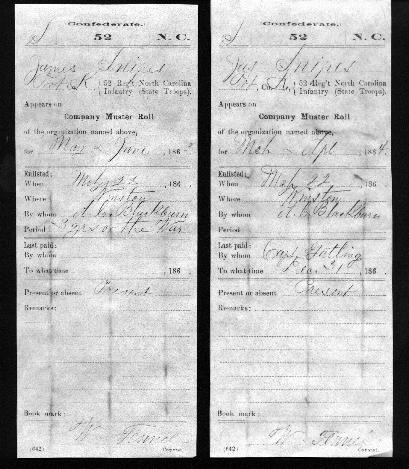 Confederate.
S 52 N. C.
James Snipes
Pvt, Co. K, 52 Reg't North Carolina
Infantry (State Troops).
Appears on
Company Muster Roll
of the organization named above,
for May & June, 186
Enlisted:
When May 22, 186 .
Where Winston
By whom A. C. Blackburn
Period 3 yrs or the War
Last paid:
By whom
To what time , 186 .
Present or absent Present
Remarks:
Book mark:
(642) Copyist.
Confederate.
S 52 N. C.
Jas Snipes
Pvt, Co. K, 52 Reg't North Carolina
Infantry (State Troops).
Appears on
Company Muster Roll
of the organization named above,
for Mch & Apl, 1864.
Enlisted:
When May 22, 186 .
Where Winston
By whom A. C. Blackburn
Period
Last paid:
By whom Capt
To what time Dec 31, 186 .
Present or absent Present
Remarks:
Book mark:
(642) Copyist.